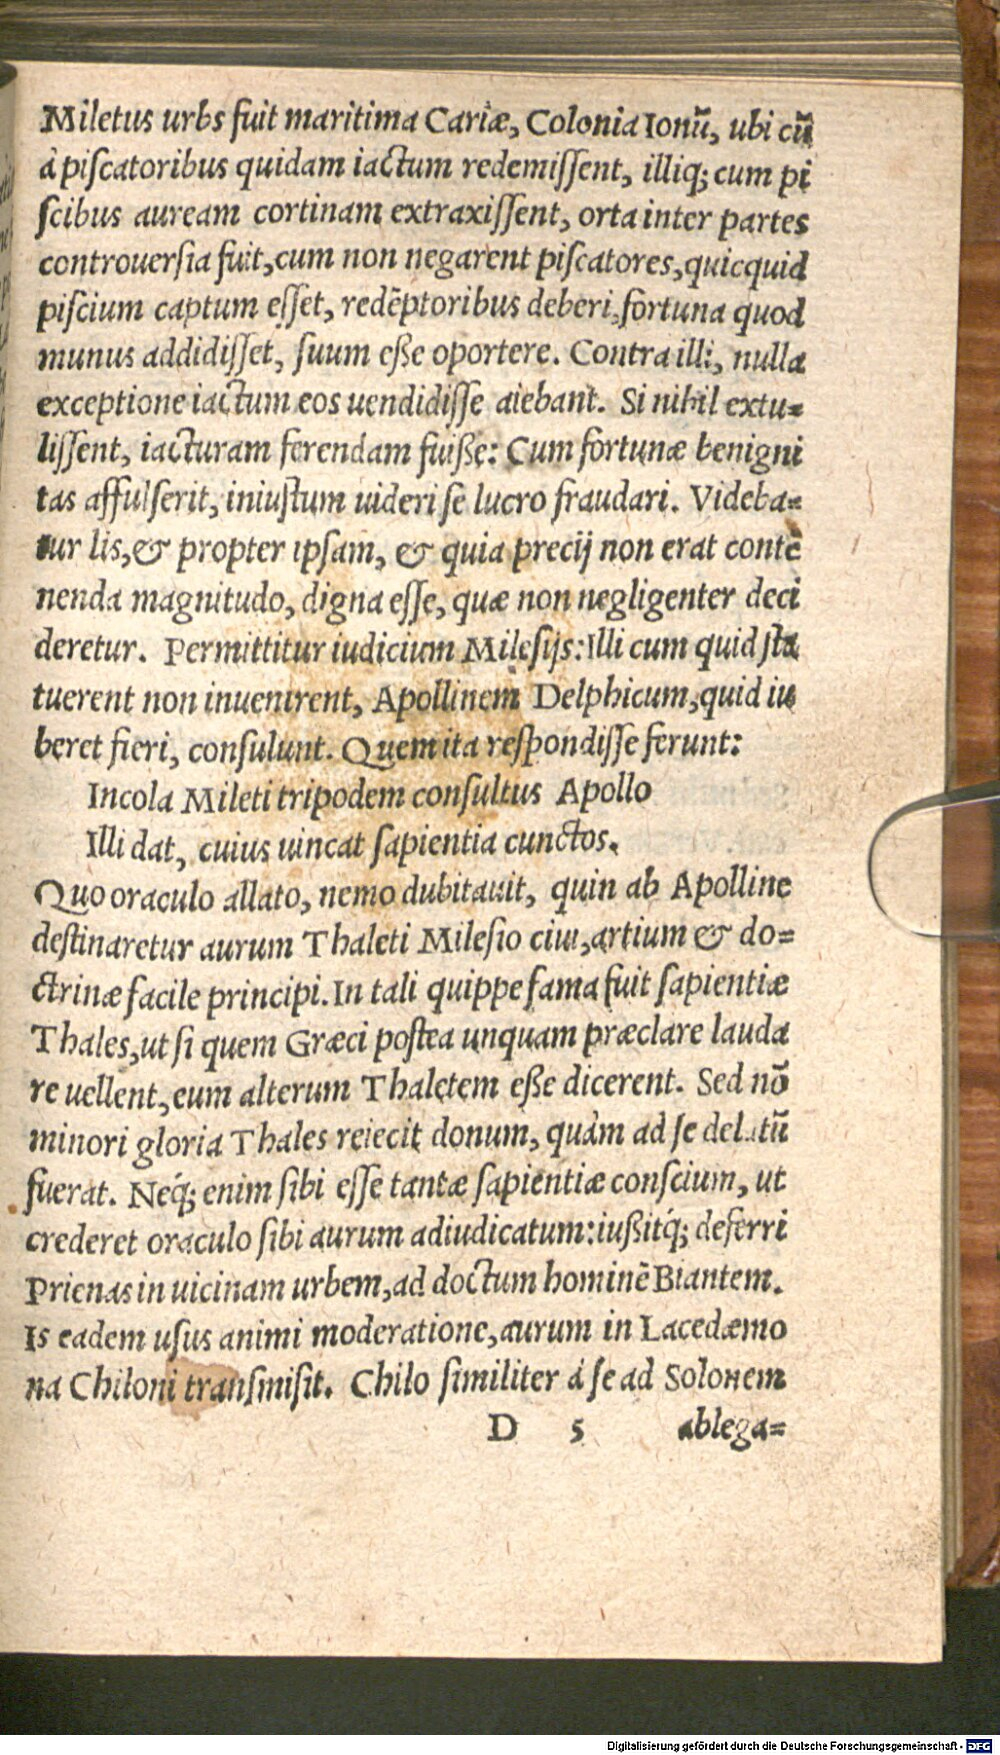 Miletus urbs fuit maritima Cariæ, Colonia Ionū, ubi cū
à piſcatoribus quidam iactum redemiſſent, illiq; cum pi
ſcibus auream cortinam extraxiſſent, orta inter partes
controuerſia fuit, cum non negarent piſcatores, quicquid
piſcium captum eſſet, redēptoribus deberi, fortuna quod
munus addidiſſet, ſuum eße oportere. Contra illi, nulla
exceptione iactum eos uendidiſſe aiebant. Si nihil extu=
liſſent, iacturam ferendam fuiße: Cum fortunæ benigni
tas affulſerit, iniuſtum uideri ſe lucro fraudari. Videba=
tur lis, & propter ipſam, & quia precij non erat contē
nenda magnitudo, digna eſſe, quæ non negligenter deci
deretur. Permittitur iudicium Mileſijs: Illi cum quid ſta
tuerent non inuenirent, Apollinem Delphicum, quid iu
beret fieri, conſulunt. Quem ita reſpondiſſe ferunt:
Incola Mileti tripodem conſultus Apollo
Illi dat, cuius uincat ſapientia cunctos.
Quo oraculo allato, nemo dubitauit, quin ab Apolline
deſtinaretur aurum Thaleti Mileſio ciui, artium & do=
ctrinæ facile principi. In tali quippe fama fuit ſapientiæ
Thales, ut ſi quem Græci poſtea unquam præclare lauda
re uellent, eum alterum Thaletem eße dicerent. Sed nō
minori gloria Thales reiecit donum, quàm ad ſe delatū
fuerat. Neq́; enim ſibi eſſe tantæ ſapientiæ conſcium, ut
crederet oraculo ſibi aurum adiudicatum: iußitq́; deferri
Prienas in uicinam urbem, ad doctum hominē Biantem.
Is eadem uſus animi moderatione, aurum in Lacedæmo
na Chiloni tranſmiſit. Chilo ſimiliter à ſe ad Solonem
D 5 ablega=
Digitalisierung gefördert durch die Deutsche Forschungsgemeinschaft - DFG